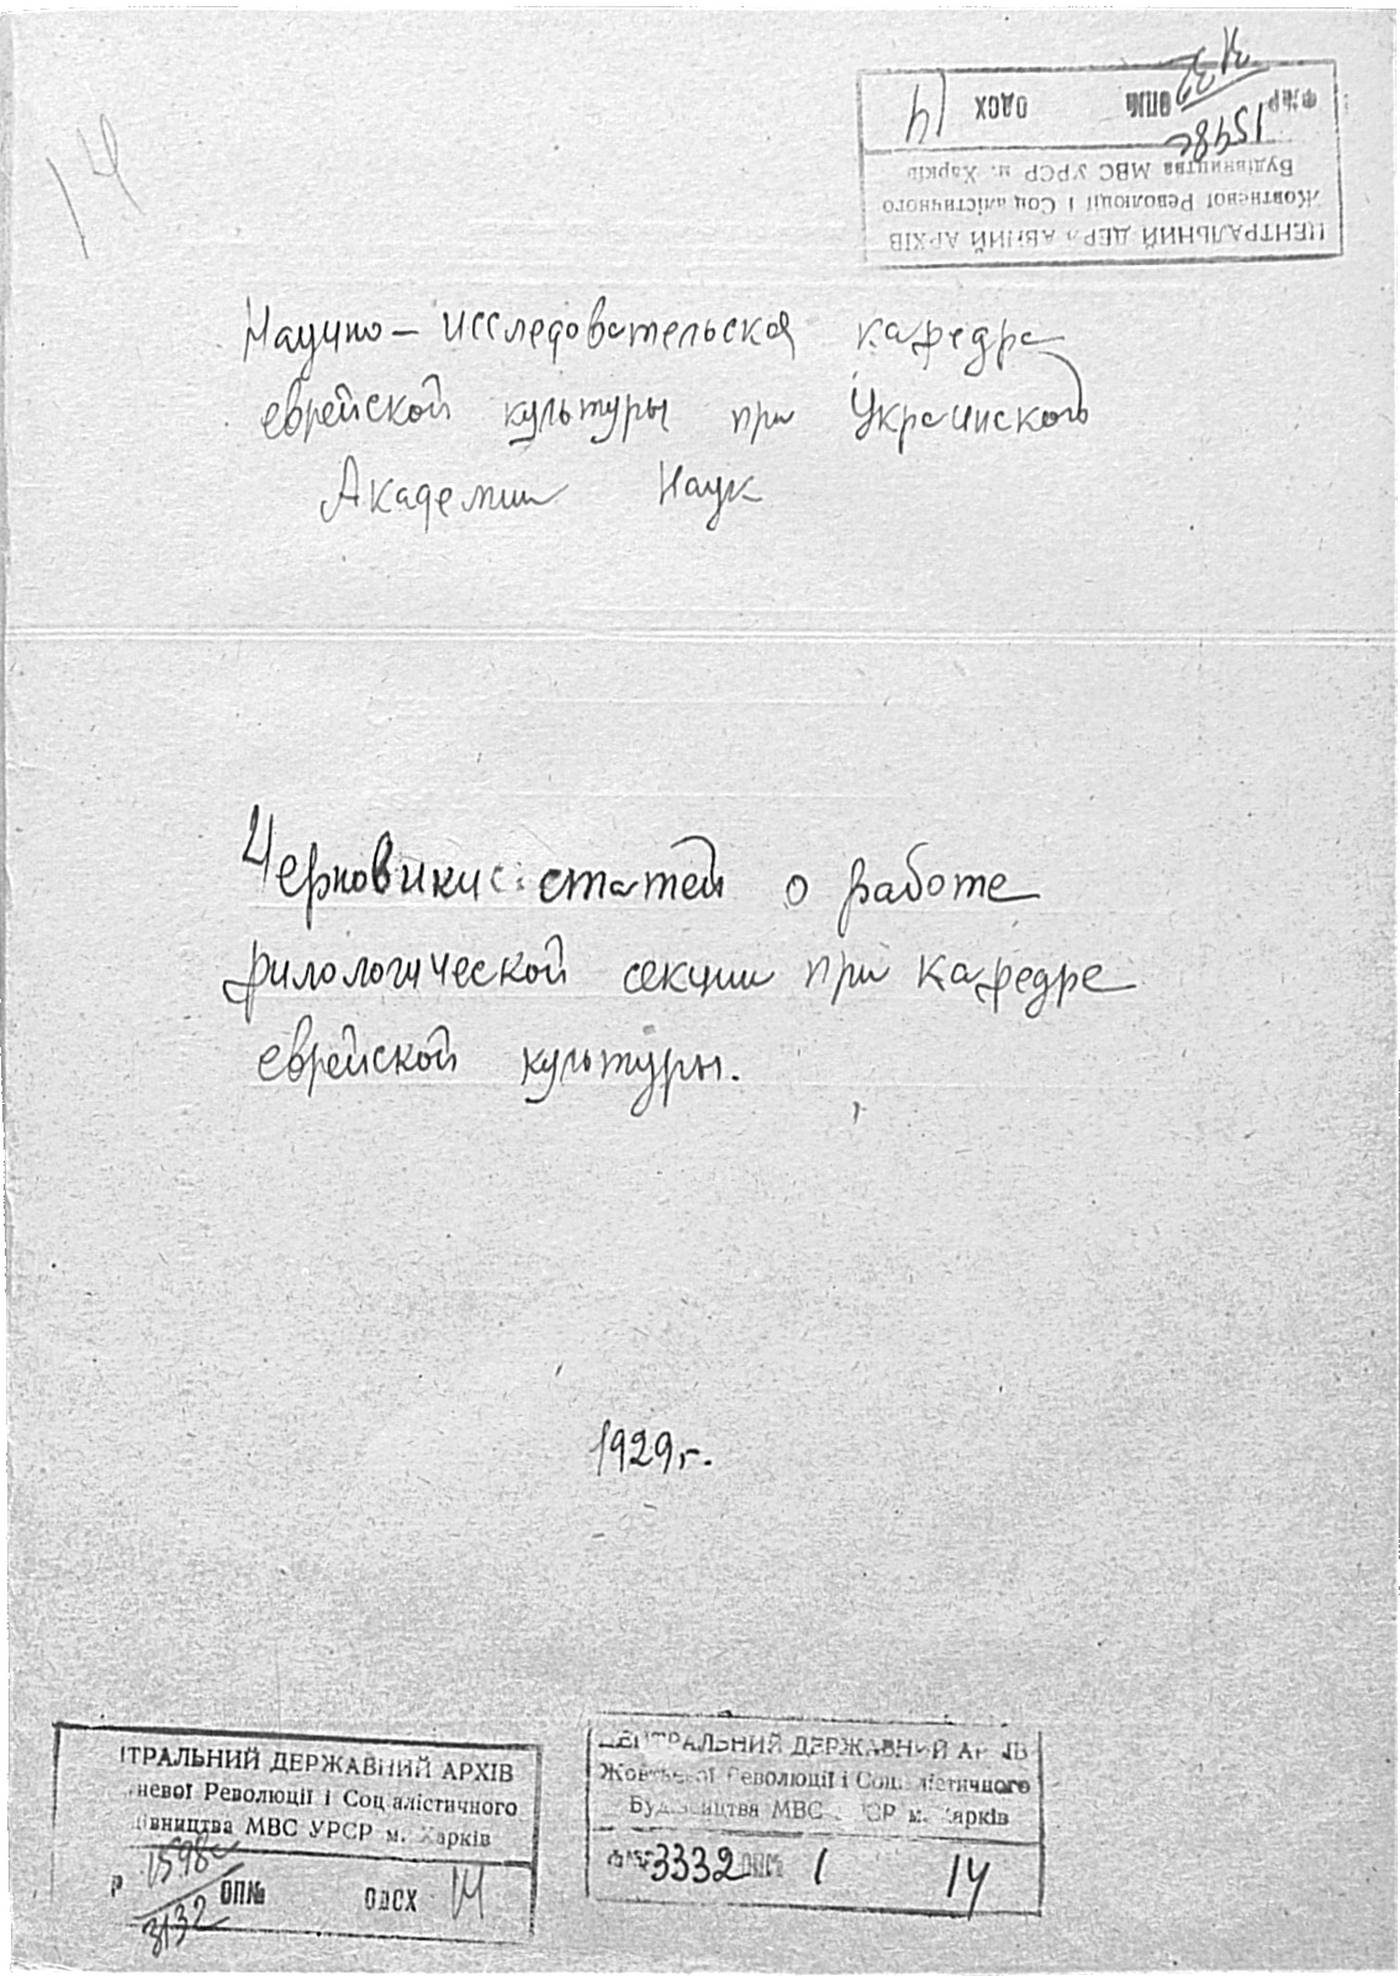 14
ЦЕНТРАЛЬНИЙ ДЕРЖАВНИЙ АРХІВ
Жовтневої Революції і Соціалістичного
Будівництва МВС УРСР м. Харків
ФN€Р 1598с ОПN€ ОДСХ 14
Научно - исследовательская кафедра
еврейской культуры при Украинской
Академии Наук
Черновики статей о работе
филологической секции при кафедре
еврейской культуры.
1929 г.
ІТРАЛЬНИЙ ДЕРЖАВНИЙ АРХІВ
невої Революції і Соціалістичного
івництва МВС УРСР м. Харків
Р 1598с ОП№ ОДСХ 14
3132
ЦЕНТРАЛЬНИЙ ДЕРЖАВНИЙ АРХІВ
Жовтневої Революції і Соціалістичного
Будівництва МВС УРСР м. Харків
3332 ОП№ 1 14